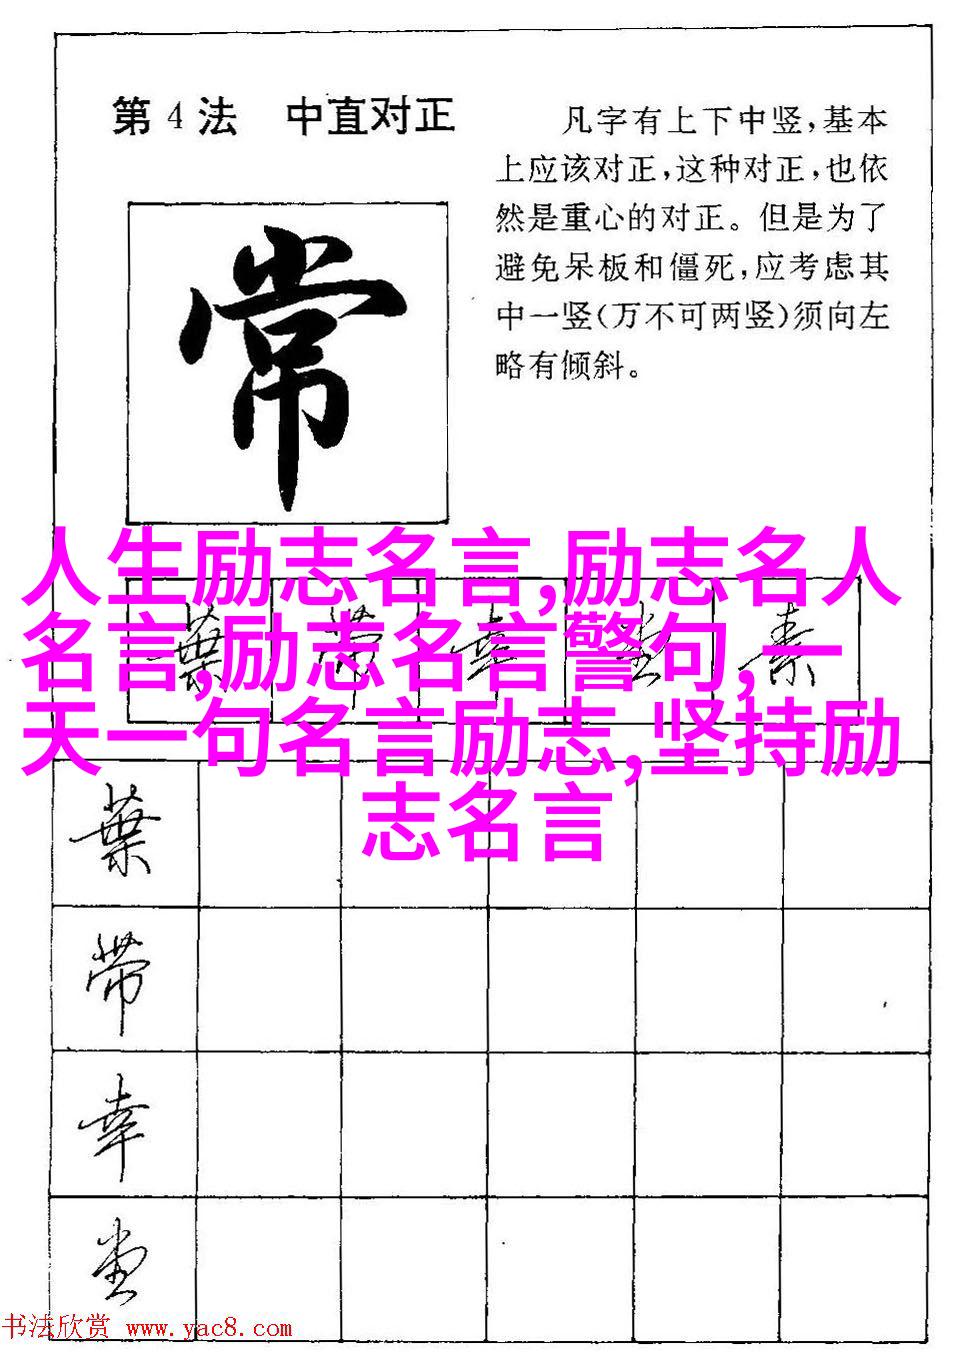 第4法 中直对正
凡字有上下中竖,基本
上应该对正,这种对正,也依
然是重心的对正。但是为了
避免呆板和僵死,应考虑其
中一竖(万不可两竖)须向左
略有倾斜。
常
人生励志名言,励志名人
名言,励志名言警句,一
天一句名言励志,坚持励
志名言
葉 带 幸 堂 素
葉
带
幸
堂
书法欣赏 www.yac8.com